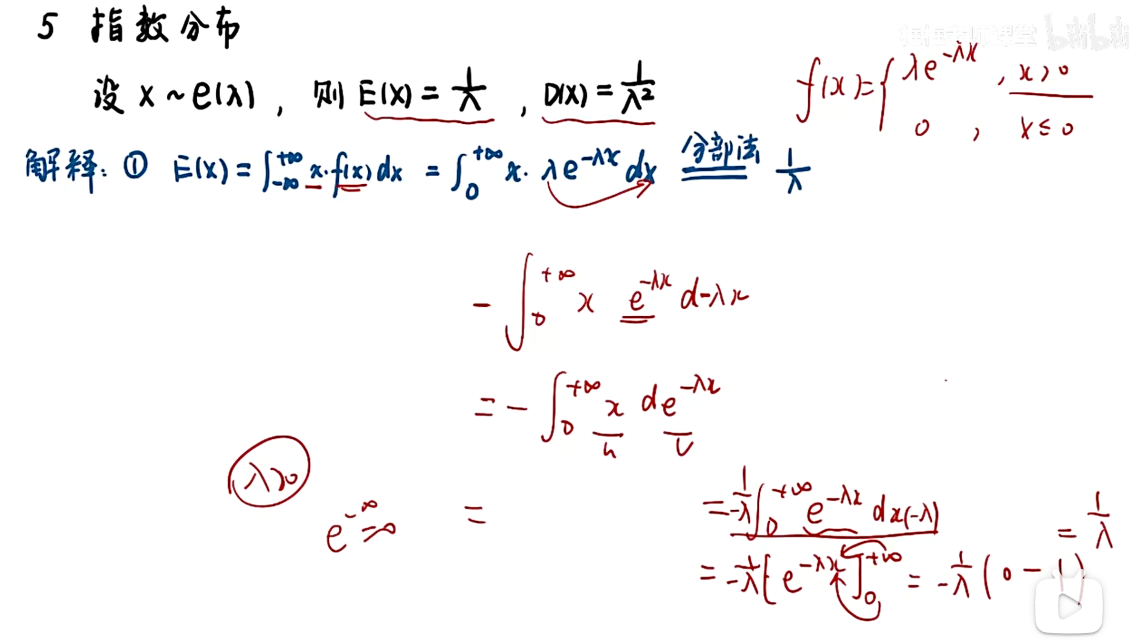 5 指数分布
设 X ~ e(λ), 则 E(X) = 1/λ, D(X) = 1/λ²
f(x) = { λe^{-λx}, x>0
0, x≤0
解释: ① E(X) = ∫_{-∞}^{+∞} x·f(x)dx = ∫_0^{+∞} x·λe^{-λx}dx 分部法 1/λ
- ∫_0^{+∞} x e^{-λx} d-λx
= - ∫_0^{+∞} x de^{-λx}
u v
λ>0
e^{-∞}=0
=
= 1/-λ ∫_0^{+∞} e^{-λx} dx(-λ)
= 1/-λ [e^{-λx}]_0^{+∞} = 1/-λ (0-1)
= 1/λ